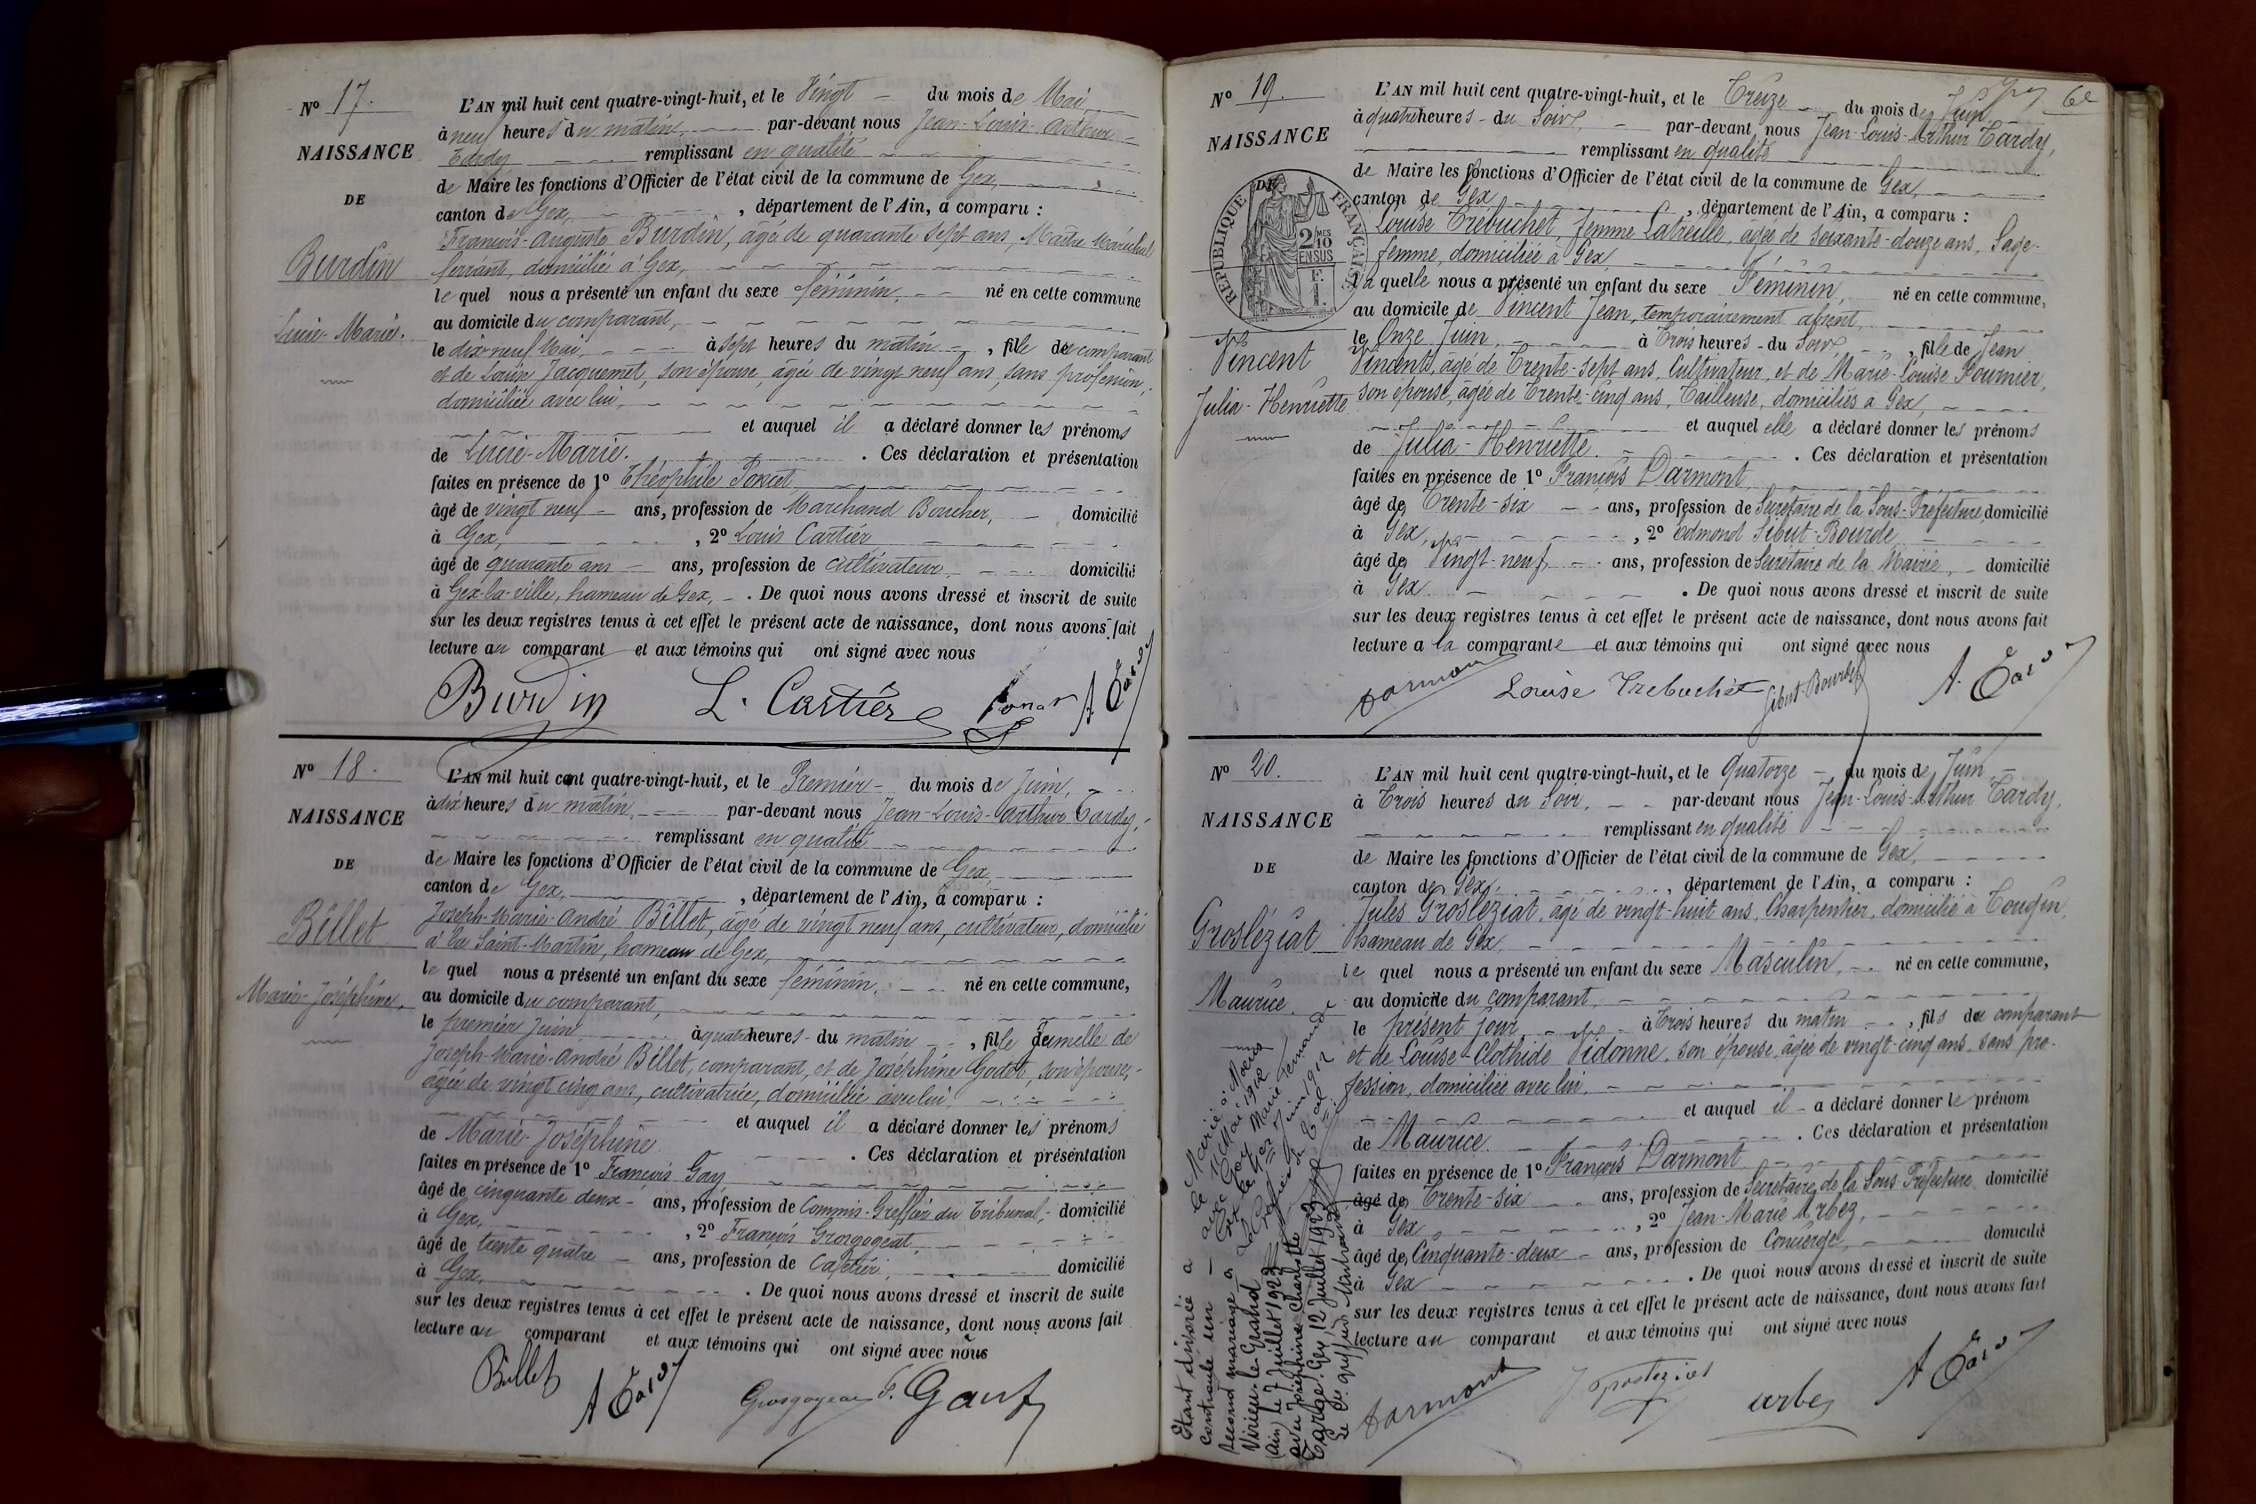 N° 17.
NAISSANCE
DE
Burdin
Lucie-Marie.
L'AN mil huit cent quatre-vingt-huit, et le Vingt du mois de Mai
à neuf heures du matin, par-devant nous Jean-Louis-Arthur
Tardy remplissant en qualité
de Maire les fonctions d'Officier de l'état civil de la commune de Gex,
canton de Gex, , département de l'Ain, a comparu :
François-Auguste Burdin, âgé de quarante sept ans, Maître Maréchal
ferrant, domicilié à Gex,
lequel nous a présenté un enfant du sexe féminin, né en cette commune
au domicile du comparant,
le dix neuf Mai, à sept heures du matin, fille de comparant
et de Louise Jacquemet, son épouse, âgée de vingt neuf ans, sans profession,
domiciliée avec lui,
et auquel il a déclaré donner les prénoms
de Lucie-Marie. . Ces déclaration et présentation
faites en présence de 1° Théophile Poncet
âgé de vingt neuf ans, profession de Marchand Boucher, domicilié
à Gex, , 2° Louis Cartier
âgé de quarante ans ans, profession de cultivateur, domicilié
à Gex-la-ville, hameau de Gex, . De quoi nous avons dressé et inscrit de suite
sur les deux registres tenus à cet effet le présent acte de naissance, dont nous avons fait
lecture au comparant et aux témoins qui ont signé avec nous
Burdin L. Cartier A. Tardy
N° 18.
NAISSANCE
DE
Billet
Marie-Joséphine.
L'AN mil huit cent quatre-vingt-huit, et le Premier du mois de Juin,
à dix heures du matin, par-devant nous Jean-Louis-Arthur Tardy,
remplissant en qualité
de Maire les fonctions d'Officier de l'état civil de la commune de Gex,
canton de Gex, , département de l'Ain, a comparu :
Joseph-Marie-André Billet, âgé de vingt neuf ans, cultivateur, domicilié
à la Saint-Martin, hameau de Gex,
lequel nous a présenté un enfant du sexe féminin, né en cette commune,
au domicile du comparant,
le premier Juin, à quatre heures du matin, fille jumelle de
Joseph-Marie-André Billet, comparant, et de Joséphine Godet, son épouse,
âgée de vingt cinq ans, cultivatrice, domiciliée avec lui,
et auquel il a déclaré donner les prénoms
de Marie-Joséphine . Ces déclaration et présentation
faites en présence de 1° François Gay
âgé de cinquante deux ans, profession de Commis-Greffier du Tribunal, domicilié
à Gex, , 2° François Grosgogeat,
âgé de trente quatre ans, profession de Cafetier, domicilié
à Gex, . De quoi nous avons dressé et inscrit de suite
sur les deux registres tenus à cet effet le présent acte de naissance, dont nous avons fait
lecture au comparant et aux témoins qui ont signé avec nous
Billet A Tardy Grosgogeat
N° 19.
NAISSANCE
DE
RÉPUBLIQUE FRANÇAISE
2/10 EN SUS
Vincent
Julia-Henriette
L'AN mil huit cent quatre-vingt-huit, et le Treize du mois de Juin
à quatre heures du Soir, par-devant nous Jean-Louis-Arthur Tardy,
remplissant en qualité
de Maire les fonctions d'Officier de l'état civil de la commune de Gex,
canton de Gex , département de l'Ain, a comparu :
Louise Trébuchet, femme Latreille, âgée de Soixante-douze ans, Sage-
femme, domiciliée à Gex,
laquelle nous a présenté un enfant du sexe Féminin, né en cette commune,
au domicile de Vincent Jean, temporairement absent,
le Onze Juin à Trois heures du Soir, fille de Jean
Vincent, âgé de Trente-sept ans, Cultivateur, et de Marie-Louise Fournier,
son épouse, âgée de Trente-cinq ans, Tailleuse, domiciliés à Gex,
et auquel elle a déclaré donner les prénoms
de Julia-Henriette . Ces déclaration et présentation
faites en présence de 1° François Darmont
âgé de Trente-six ans, profession de Secrétaire de la Sous-Préfecture domicilié
à Gex, , 2° Edmond Sibut-Bourde
âgé de Vingt-neuf ans, profession de Secrétaire de la Mairie, domicilié
à Gex . De quoi nous avons dressé et inscrit de suite
sur les deux registres tenus à cet effet le présent acte de naissance, dont nous avons fait
lecture à la comparante et aux témoins qui ont signé avec nous
Darmont Louise Trebuchet Sibut-Bourde A. Tardy
N° 20.
NAISSANCE
DE
Grosléziat
Maurice.
L'AN mil huit cent quatre-vingt-huit, et le Quatorze du mois de Juin
à Trois heures du Soir, par-devant nous Jean-Louis-Arthur Tardy,
remplissant en qualité
de Maire les fonctions d'Officier de l'état civil de la commune de Gex,
canton de Gex, , département de l'Ain, a comparu :
Jules Grosléziat, âgé de vingt-huit ans, Charpentier, domicilié à Tougin,
hameau de Gex,
lequel nous a présenté un enfant du sexe Masculin, né en cette commune,
au domicile du comparant,
le présent jour à Trois heures du matin, fils du comparant
et de Louise-Clothide Vidonne, son épouse, âgée de vingt-cinq ans, sans pro-
fession, domiciliée avec lui,
et auquel il a déclaré donner le prénom
de Maurice. . Ces déclaration et présentation
faites en présence de 1° François Darmont
âgé de Trente-six ans, profession de Secrétaire de la Sous-Préfecture domicilié
à Gex , 2° Jean-Marie Arbez,
âgé de Cinquante-deux ans, profession de Concierge, domicilié
à Gex . De quoi nous avons dressé et inscrit de suite
sur les deux registres tenus à cet effet le présent acte de naissance, dont nous avons fait
lecture au comparant et aux témoins qui ont signé avec nous
Darmont J Grosleziat Arbez A Tardy
Marié à
le Mai 1912
avec Gay Marie Fernande
Gex le Juin 1912
Étant divorcé a
contracté un
second mariage à
Virieu-le-Grand
(Ain) le 7 Juillet 1923
avec Joséphine Charlotte
Targe. Gex, 12 Juillet 1923